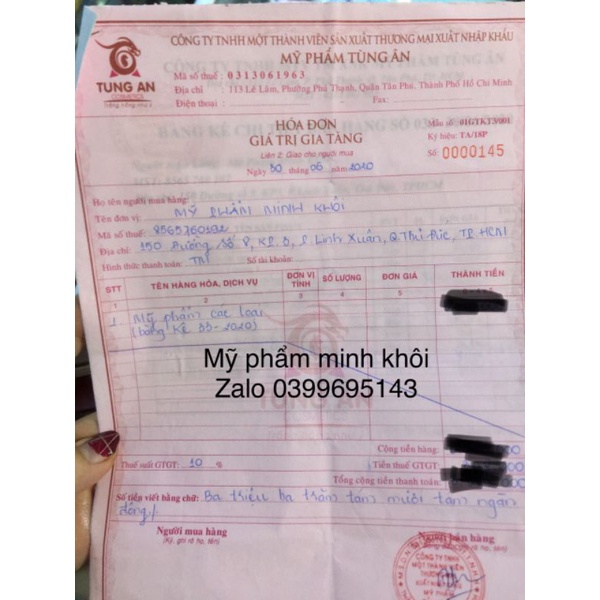 CÔNG TY TNHH MỘT THÀNH VIÊN SẢN XUẤT THƯƠNG MẠI XUẤT NHẬP KHẨU
MỸ PHẨM TÙNG ÂN
TUNG AN
COSMETICS
Mã số thuế : 0313061963
Địa chỉ : 113 Lê Lâm, Phường Phú Thạnh, Quận Tân Phú, Thành Phố Hồ Chí Minh
Điện thoại : Fax:
HÓA ĐƠN
GIÁ TRỊ GIA TĂNG
Liên 2: Giao cho người mua
Ngày 30 tháng 06 năm 2020
Mẫu số: 01GTKT3/001
Ký hiệu: TA/18P
Số: 0000145
Họ tên người mua hàng:
Tên đơn vị: MỸ PHẨM MINH KHÔI
Mã số thuế:
Địa chỉ: 150 Đường Số 8, KP. 3, P. Linh Xuân, Q. Thủ Đức, TP. HCM
Hình thức thanh toán: TM Số tài khoản:
STT TÊN HÀNG HÓA, DỊCH VỤ ĐƠN VỊ TÍNH SỐ LƯỢNG ĐƠN GIÁ THÀNH TIỀN
1 2 3 4 5
1 Mỹ phẩm các loại
(bảng kê 33-2020)
Mỹ phẩm minh khôi
Zalo 0399695143
TUNG AN
Cộng tiền hàng:
Thuế suất GTGT: 10 % Tiền thuế GTGT:
Tổng cộng tiền thanh toán:
Số tiền viết bằng chữ: Ba triệu ba trăm tám mươi tám ngàn
đồng./
Người mua hàng
(Ký, ghi rõ họ, tên)
Người bán hàng
CÔNG TY TNHH
MỘT THÀNH VIÊN